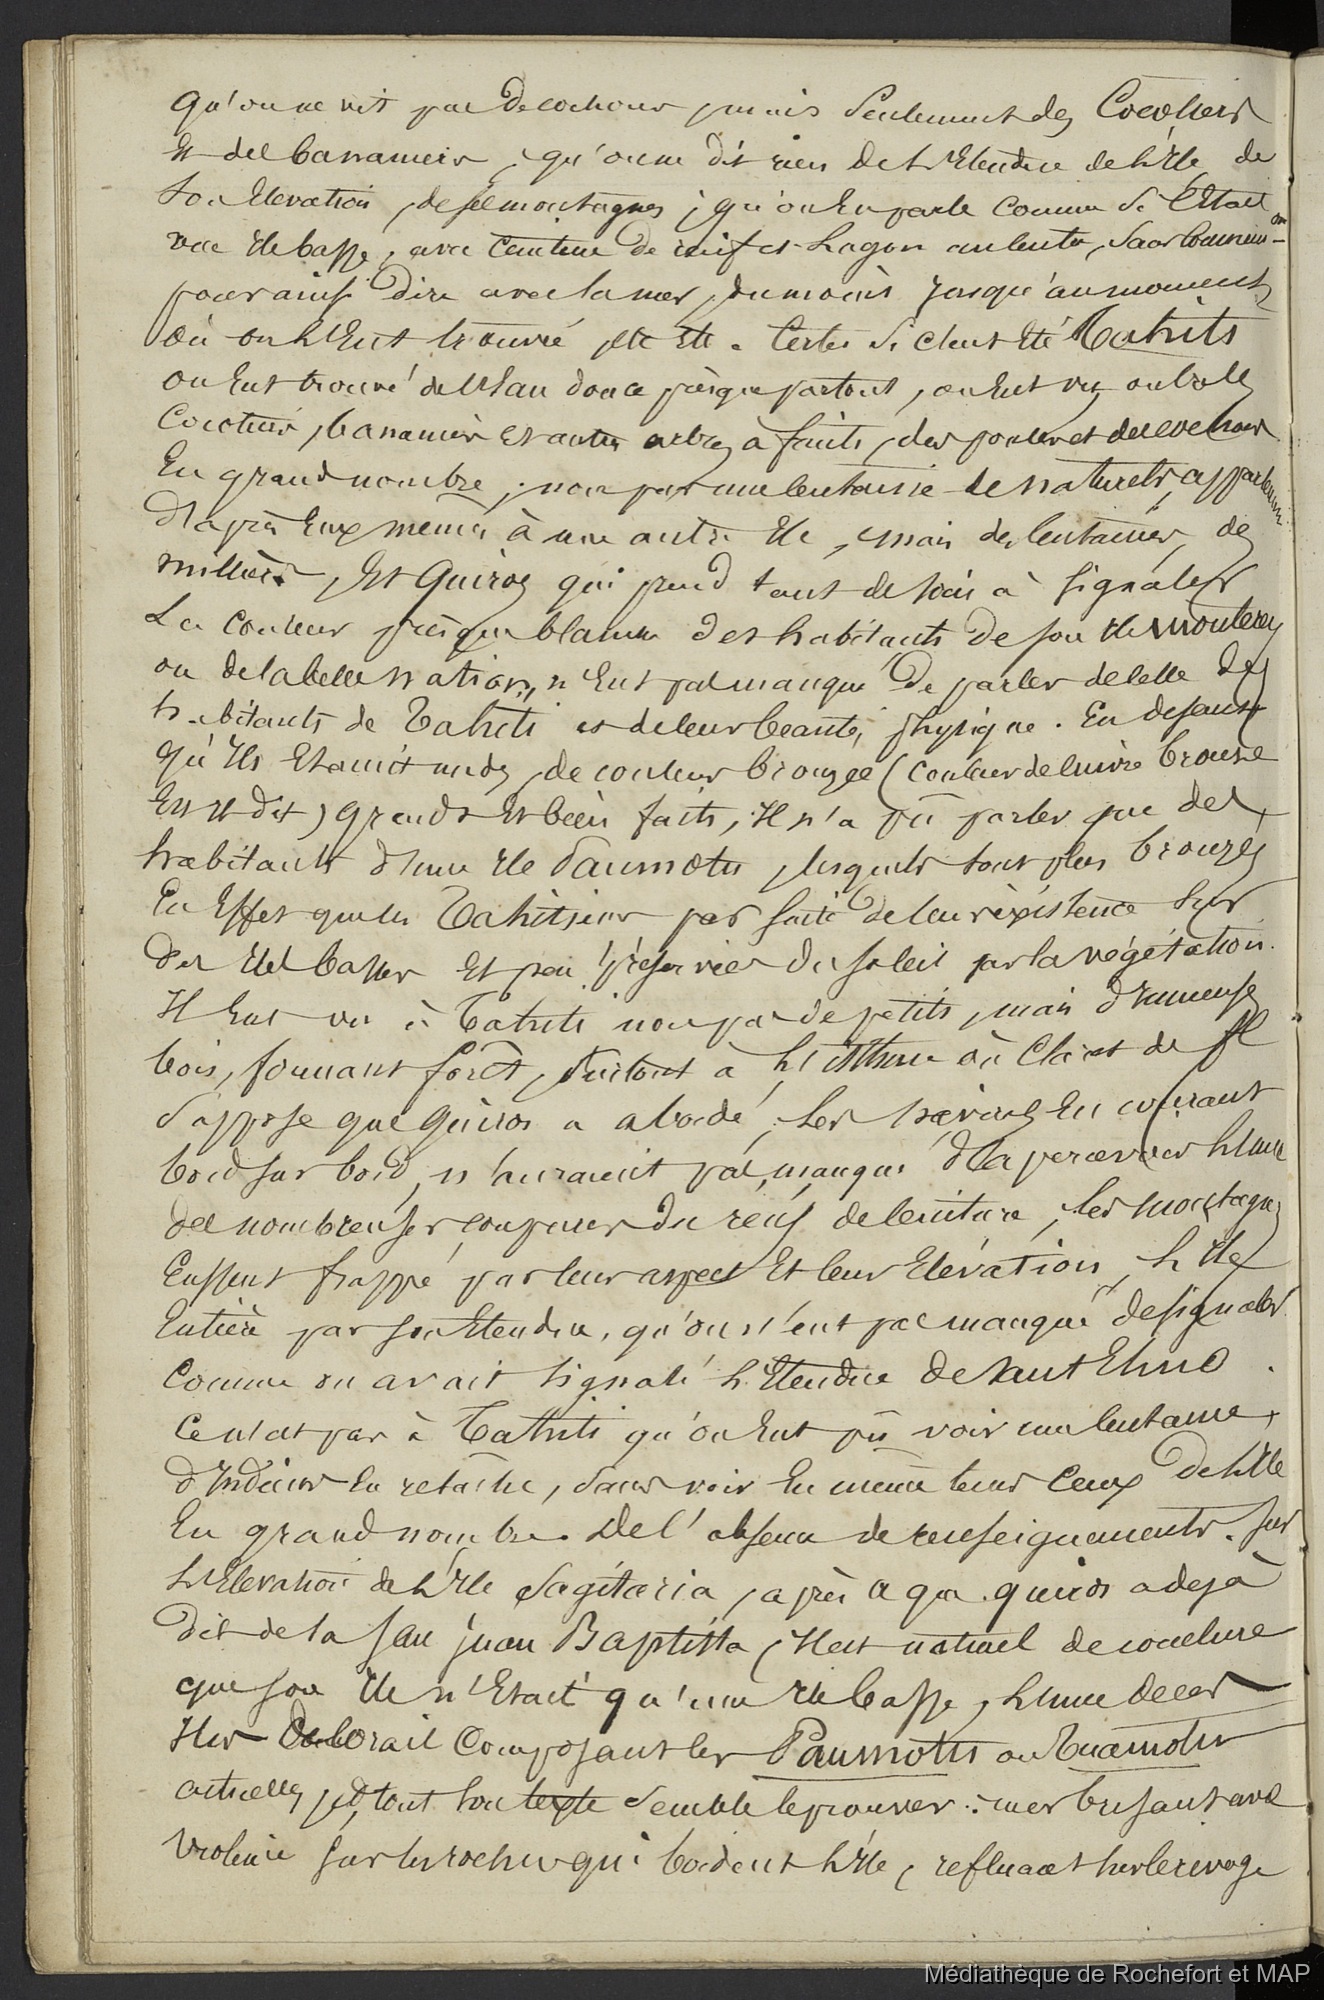 qu'on ne vit pas de cochons, mais seulement des Cocotiers
Et des bananiers, qu'on ne dit rien de l'Etendue de l'Ile, de
son Elevation, de ses montagnes, qu'on En parle comme si C'Etait
une Ile basse, avec Ceinture de récif et Lagon au centre, sans communi-
pour ainsi dire avec la mer, du moins jusqu'au moment
où on l'Eut trouvé, etc Etc. Certes si c'eut Eté Tahiti
on Eut trouvé de l'Eau douce presque partout, on Eut vu, outre les
Cocotiers, bananiers Et autres arbres à fruits, des poules et des cochons
En grand nombre; non pas une centaine de naturels, appartenan
d'après Eux memes à une autre Ile, mais des centaines, des
milliers, Et Quiros qui prend tant de soin à signaler
La couleur presque blanche des habitants de son Ile Monterey
ou de la belle nation, n'Eut pas manqué de parler de celle des
habitants de Tahiti et de leur beauté physique. En disant
qu'Ils Etaient nuds, de couleur bronzée (couleur de cuivre bronze
Est Il dit) grands Et bien faits, Il n'a pû parler que des
habitants d'une Ile Paumotu, lesquels sont plus bronzés
En Effet que les Tahitiens par suite de leur existence sur
des Iles basses Et peu préservées du soleil par la végétation.
Il Eut vu à Tahiti non pas de petits, mais d'Immenses
bois, formant forêt, surtout à l'Isthme où Claret de Fl
suppose que Quiros a abordé; Les navires En courant
bord sur bord, n'auraient pas manqué d'apercevoir l'une
des nombreuses coupures du récif de ceinture; Les montagnes
Eussent frappé par leur aspect Et leur Elévation, L'Ile
Entière par son Etendue, qu'on n'eut pas manqué de signaler
Comme on avait signalé l'Etendue de Sant Elmo.
Ce n'est pas à Tahiti qu'on Eut pû voir une centaine
d'Indiens En relâche, sans voir En même temps Ceux de l'Ile
En grand nombre. De l'absence de renseignements sur
L'Elevation de L'Ile Sagitaria, après ce que Quiros a dejà
dit de la San Juan Baptista, Il est naturel de conclure
que son Ile n'Etait qu'une Ile basse, L'une de ces
Iles de Corail Composant les Paumotu ou Tuamotu
actuelles, Et tout son texte semble le prouver: mer brisant avec
violence sur les roches qui bordent L'Ile, refluant sur le rivage
Médiathèque de Rochefort et MAP